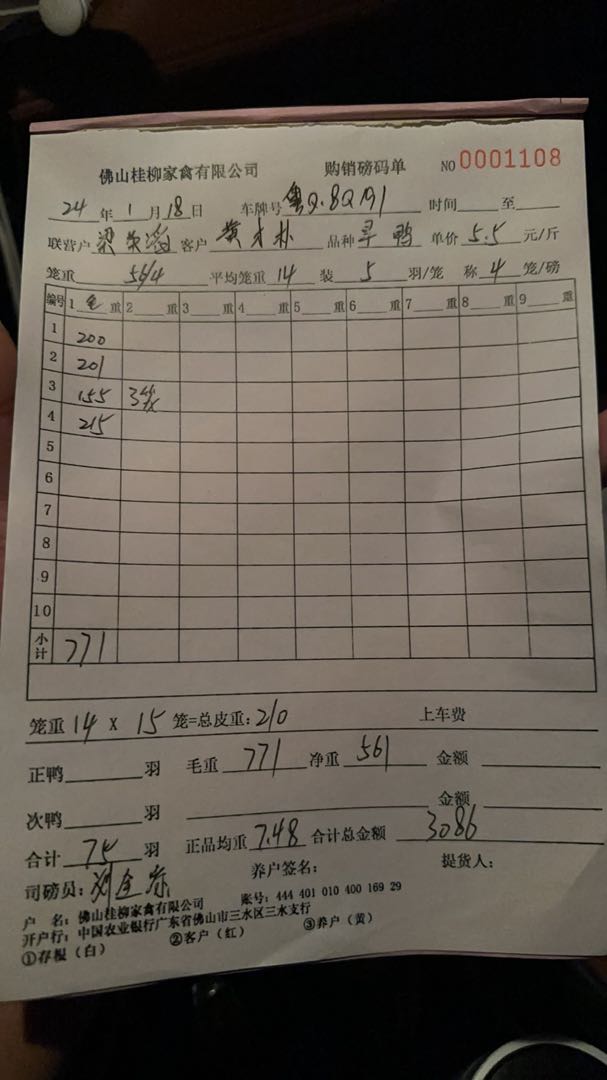 佛山桂柳家禽有限公司 购销磅码单 NO 0001108
24 年 1 月 18 日 车牌号 粤Q·8Q191 时间 至
联营户 梁荣 客户 黄才朴 品种 旱鸭 单价 5.5 元/斤
笼重 56/4 平均笼重 14 装 5 羽/笼 称 4 笼/磅
编号 1 毛 重 2 重 3 重 4 重 5 重 6 重 7 重 8 重 9 重
1 200
2 201
3 155 3笼
4 215
5
6
7
8
9
10
小计 771
笼重 14 x 15 笼=总皮重: 210 上车费
正鸭 羽 毛重 771 净重 561 金额
次鸭 羽 金额
合计 75 羽 正品均重 7.48 合计总金额 3086
司磅员: 刘 养户签名: 提货人:
户 名: 佛山桂柳家禽有限公司 账号: 444 401 010 400 169 29
开户行: 中国农业银行广东省佛山市三水区三水支行
①存根（白） ②客户（红） ③养户（黄）